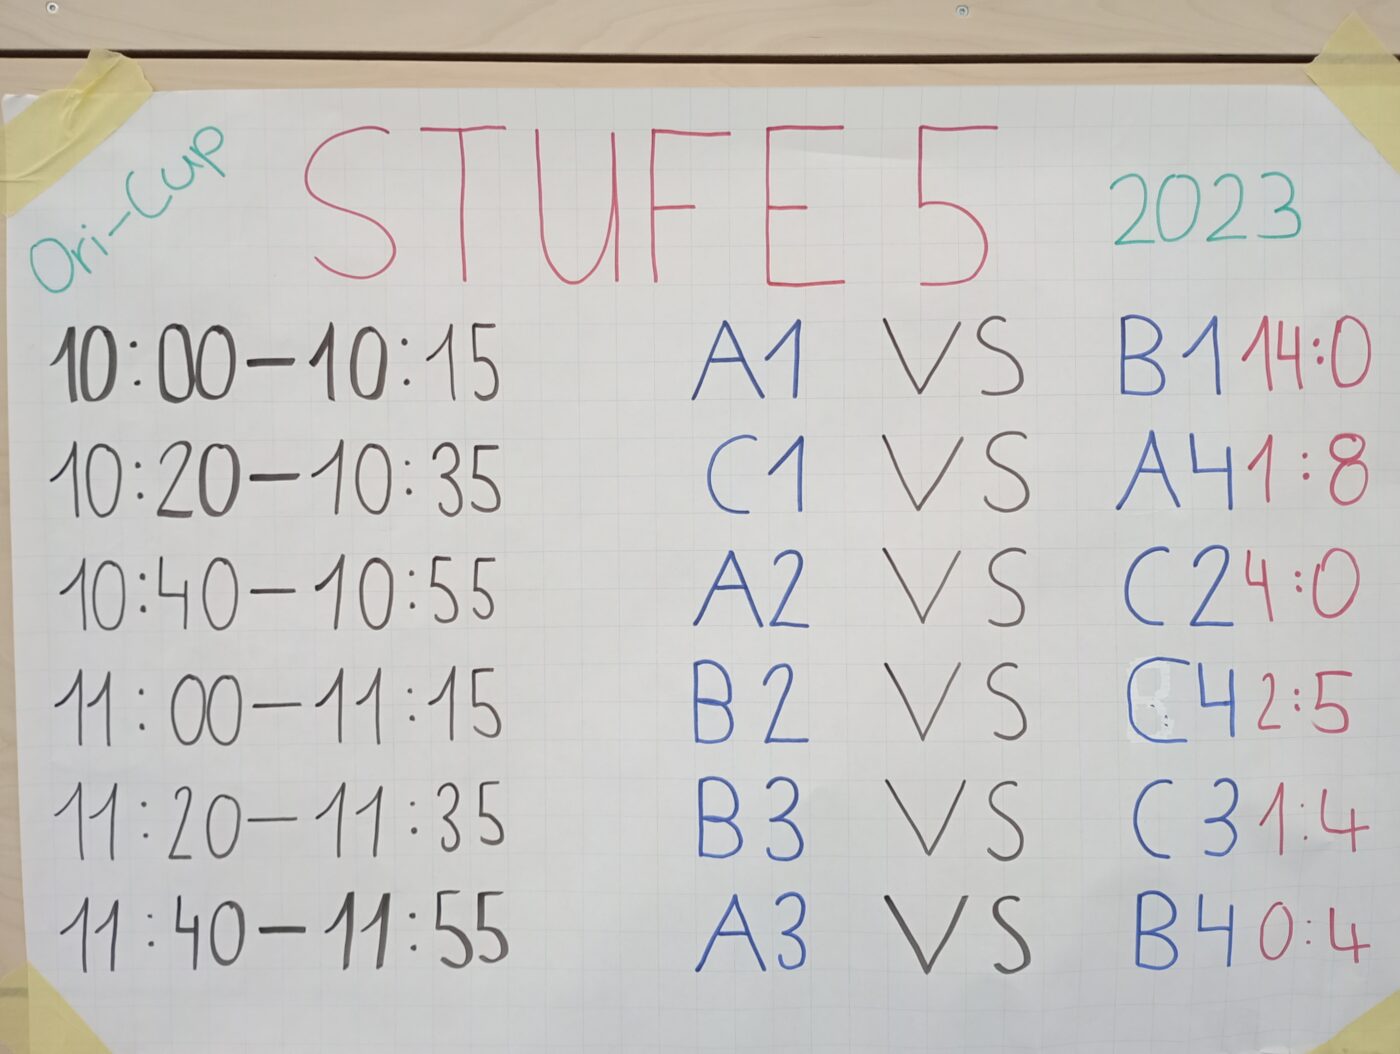 Ori-Cup STUFE 5 2023
10:00-10:15 A1 VS B1 14:0
10:20-10:35 C1 VS A4 1:8
10:40-10:55 A2 VS C2 4:0
11:00-11:15 B2 VS C4 2:5
11:20-11:35 B3 VS C3 1:4
11:40-11:55 A3 VS B4 0:4